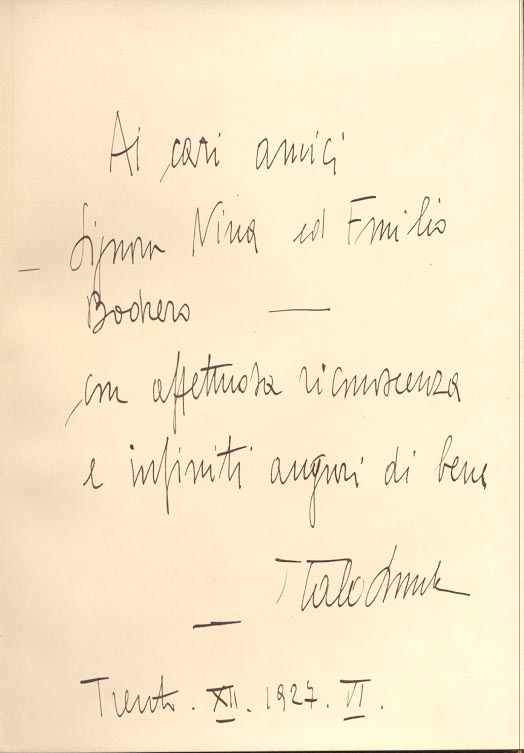 Ai cari amici
Signora Nina ed Emilio
Bochero —
con affettuosa riconoscenza
e infiniti auguri di bene
Italo Lunelli
—
Trento. XII. 1927. VI.